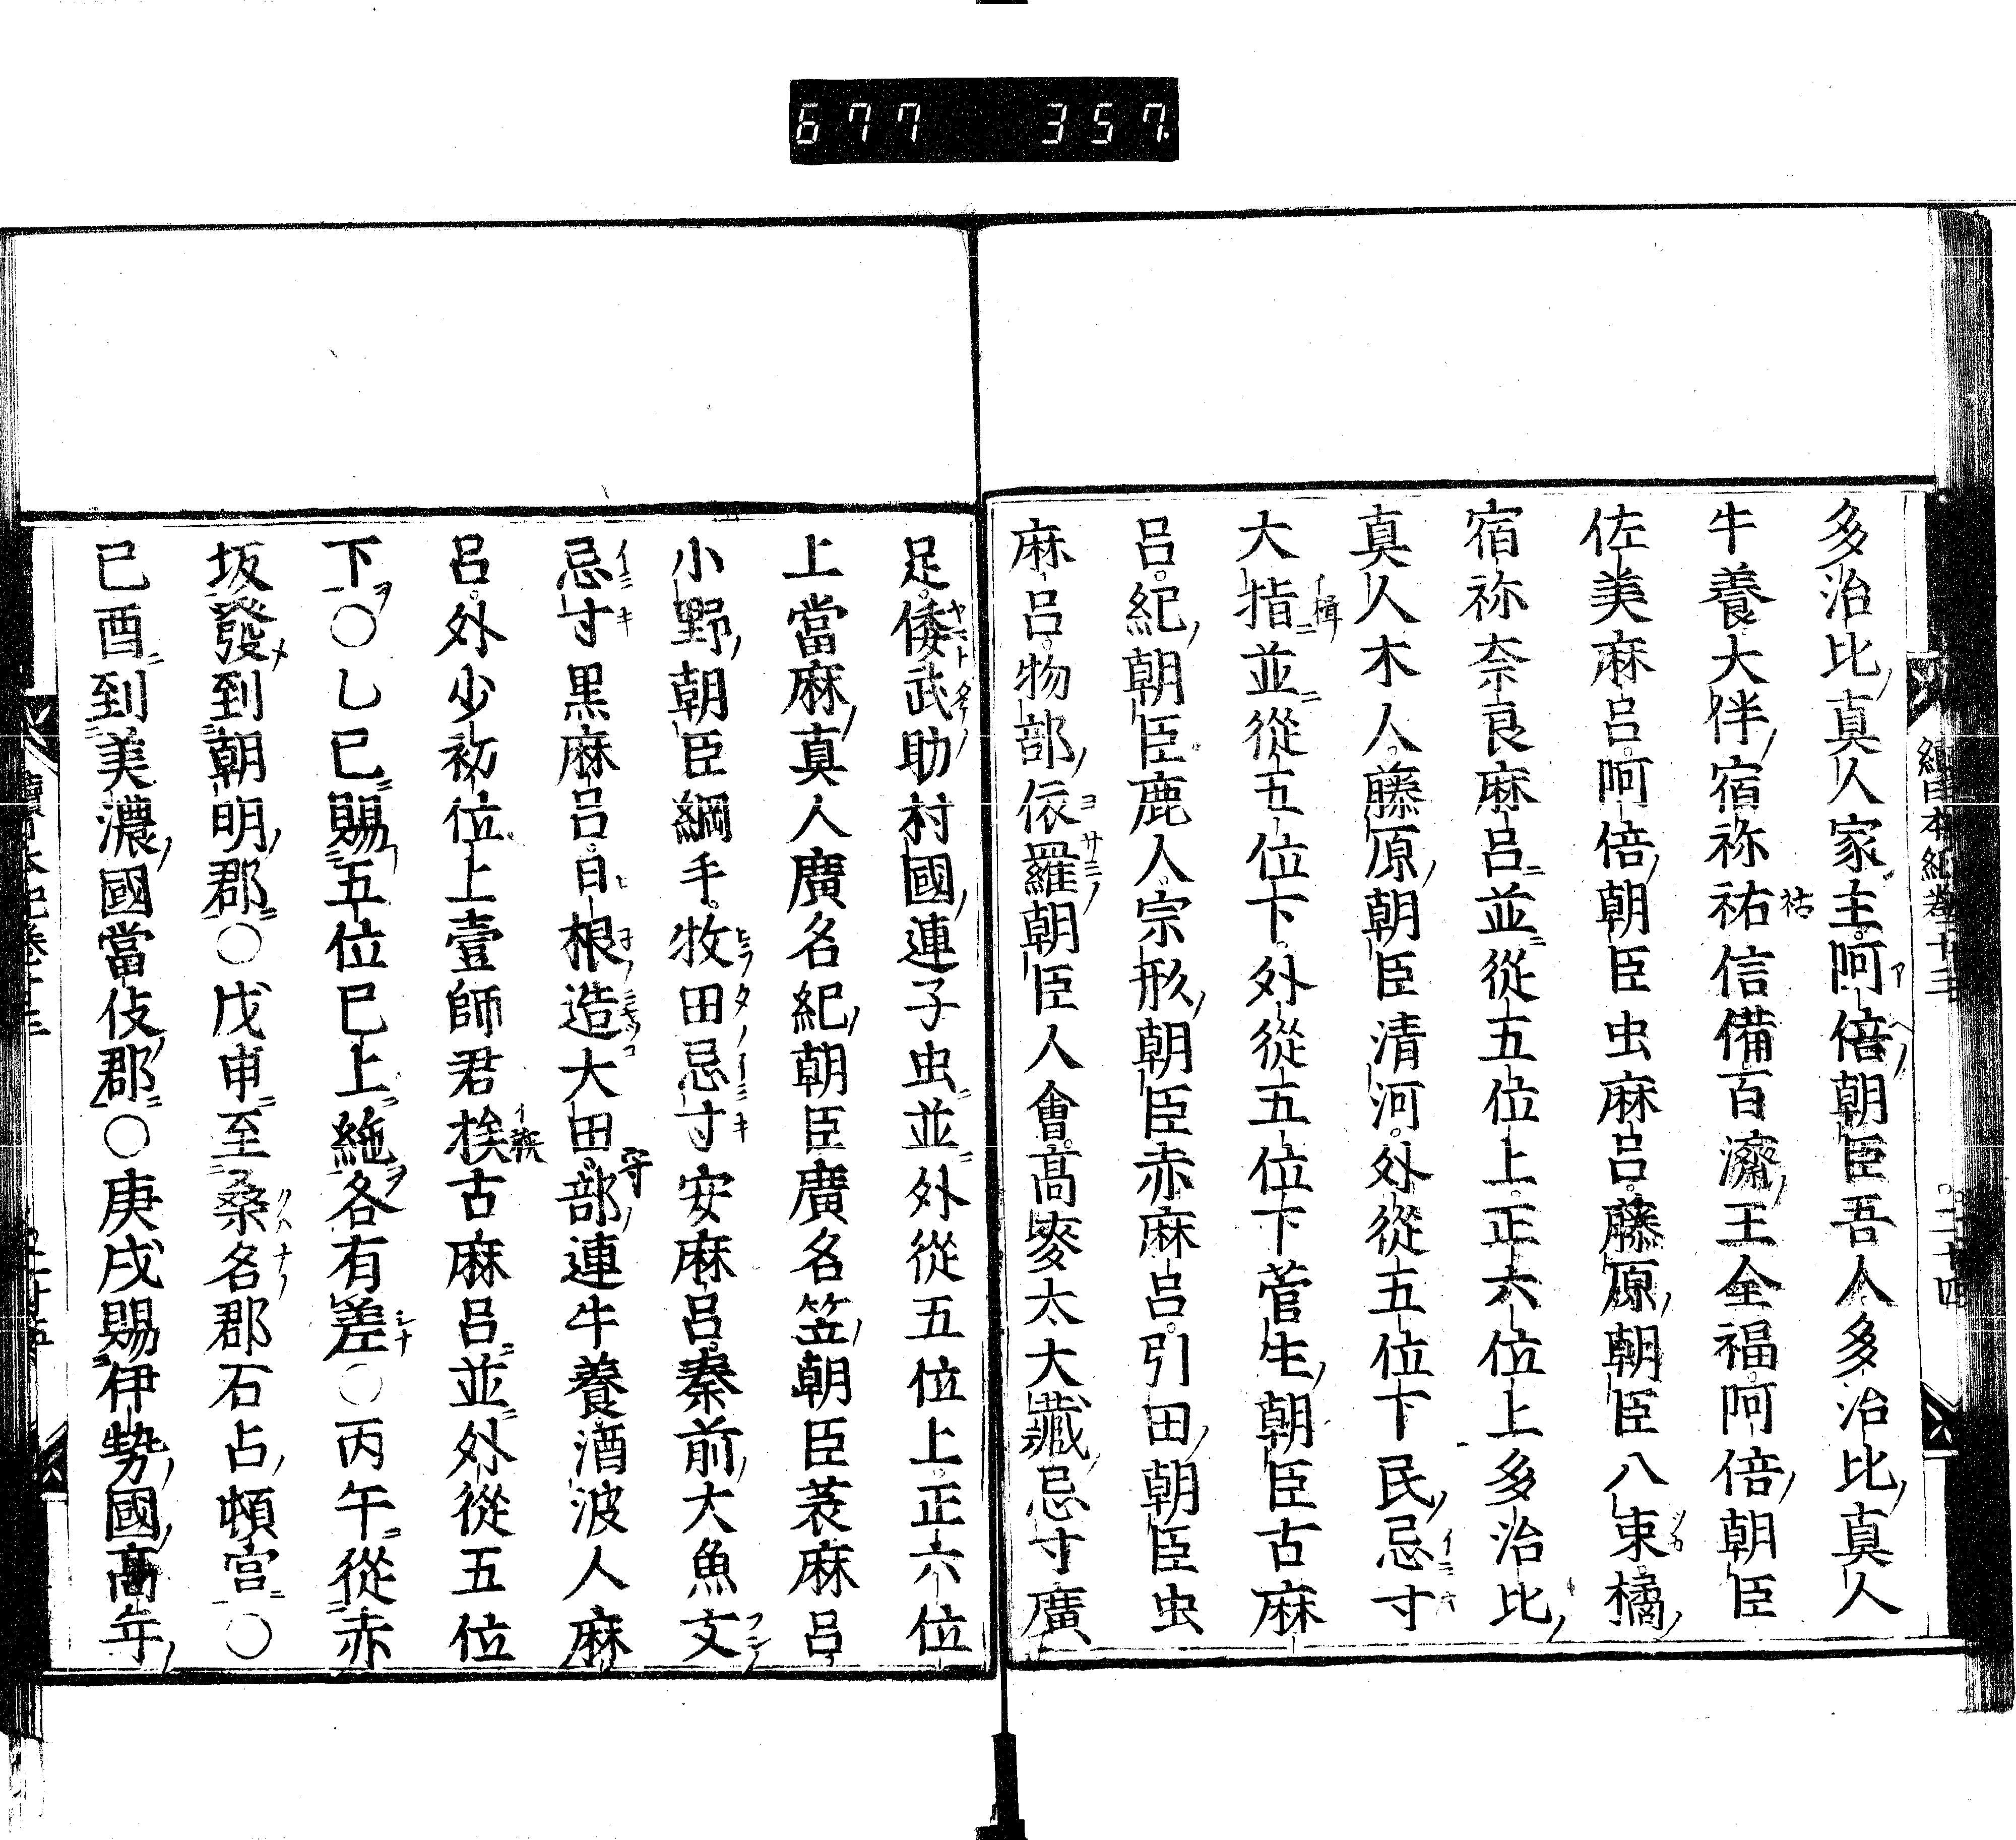 677 357
續日本紀卷十三
二十四
多治比真人家主阿倍朝臣吾人多治比真人
牛養大伴宿祢祐信備百濟王全福阿倍朝臣
佐美麻呂阿倍朝臣虫麻呂藤原朝臣八束橘
宿祢奈良麻呂並從五位上正六位上多治比
真人木人藤原朝臣清河外從五位下民忌寸
大揩並從五位下外從五位下菅生朝臣古麻
呂紀朝臣鹿人宗形朝臣赤麻呂引田朝臣虫
麻呂物部依羅朝臣人會高麥太大藏忌寸廣
足倭武助村國連子虫並外從五位上正六位
上當麻真人廣名紀朝臣廣名笠朝臣蓑麻呂
小野朝臣綱手牧田忌寸安麻呂秦前大魚文
忌寸黑麻呂日根造大田部連牛養酒波人麻
呂外少初位上壹師君族古麻呂並外從五位
下〇乙巳賜五位已上絁各有差〇丙午從赤
坂發到朝明郡〇戊申至桑名郡石占頓宮〇
己酉到美濃國當伎郡〇庚戌賜伊勢國高年
續日本紀卷十三